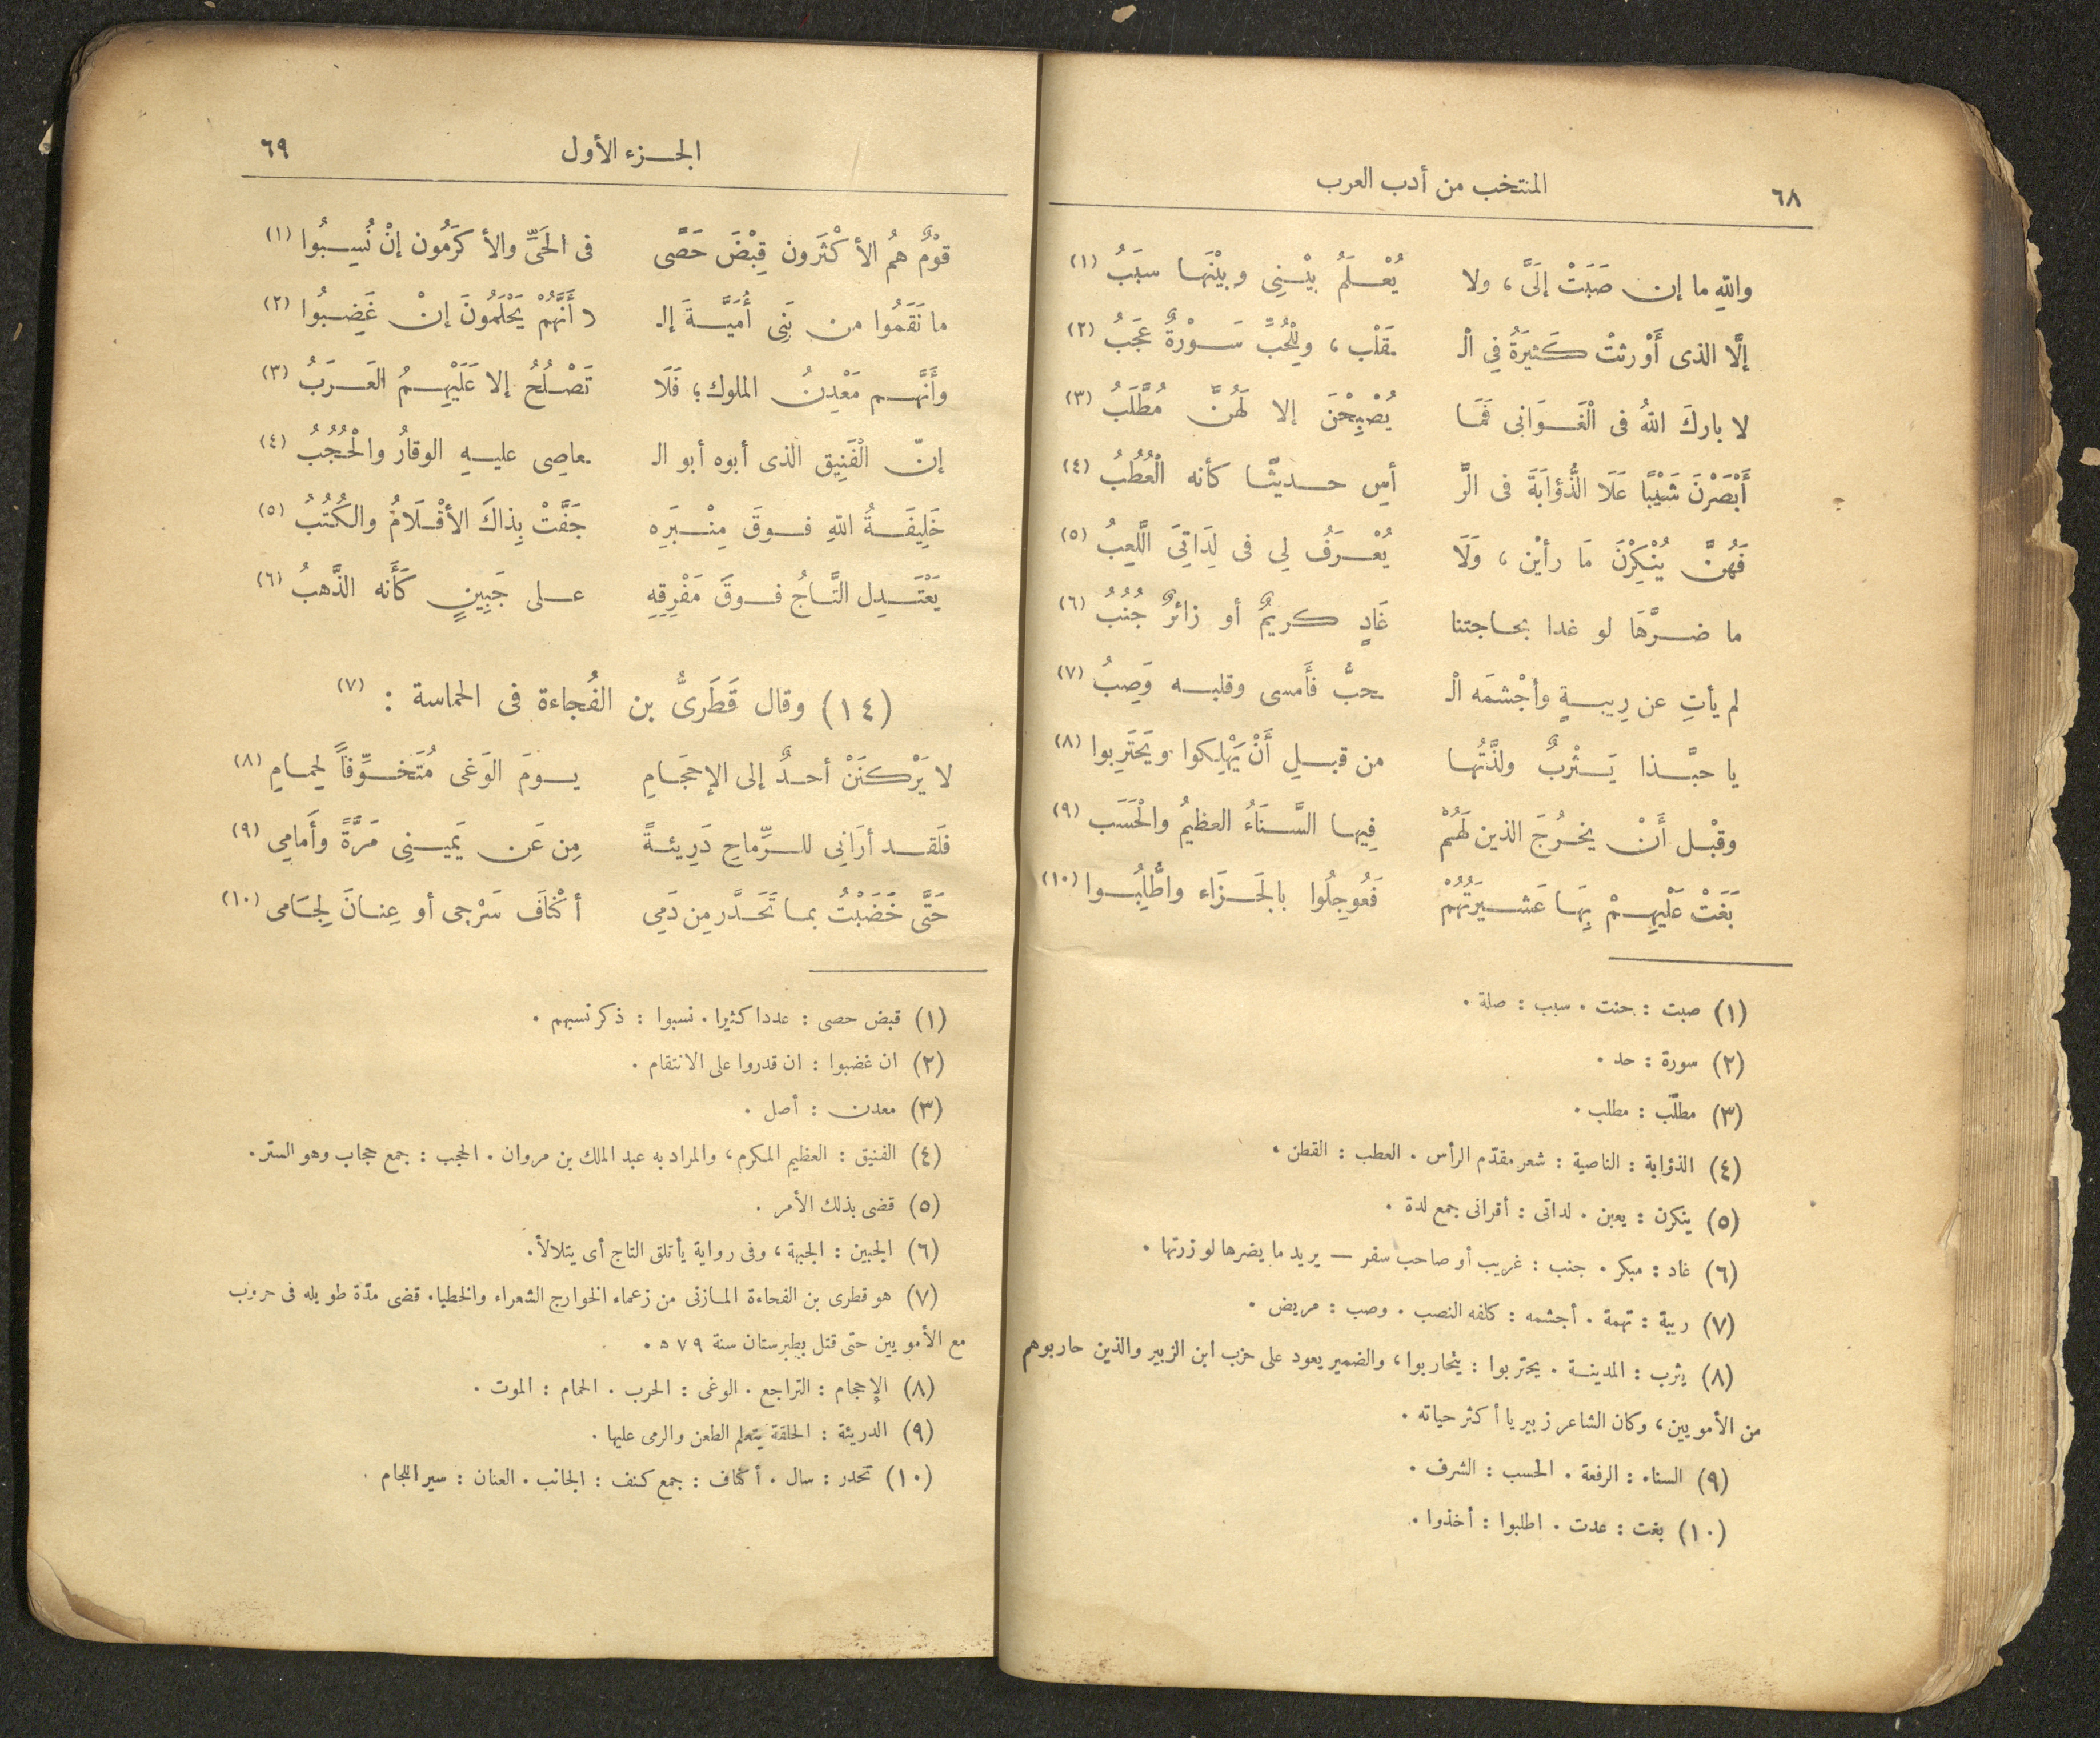 ٦٨
المنتخب من أدب العرب
والله ما إن صَبَتْ إلَىَّ ، ولا يُعْلَمُ بيْنِى وبيْنَها سبَبُ (١)
إلَّا الذى أَوْرثتْ كَثيرَةُ فِي الْـ ـقَلْب ، ولِلْحُبِّ سَوْرةٌ عَجَبُ (٢)
لا باركَ اللهُ فى الْغَوَانى فَمَا يُصْبِحْنَ إلا لَهُنَّ مُطَّلَبُ (٣)
أَبْصَرْنَ شَيْبًا عَلَا الذُّؤابَةَ فى الرَّ أسِ حديثًا كأنه الْعُطُبُ (٤)
فَهُنَّ يُنْكِرْنَ مَا رأيْن ، وَلَا يُعْرَفُ لِي فى لِدَاتِىَ اللَّعِبُ (٥)
ما ضرَّهَا لو غدا بحاجتنا غَادٍ كريمٌ أو زائرٌ جُنُبُ (٦)
لم يأتِ عن رِيبةٍ وأجْشمَه الْـ ـحبُّ فَأَمسى وقلبه وَصِبُ (٧)
يا حبَّذا يَثْربٌ ولذَّتُها من قبلِ أَنْ يَهْلِكوا ويَحْتَرِبوا (٨)
وقبْل أَنْ يخرُجَ الذين لَهُمْ فِيها السَّنَاءُ العظيمُ والْحَسَب (٩)
بَغَتْ عَلَيْهِمْ بِهَا عَشيرَتُهُمْ فَعُوجِلُوا بالجَزَاء واطُّلِبُوا (١٠)
(١) صبت : حنت . سبب : صلة .
(٢) سورة : حد .
(٣) مطلّب : مطلب .
(٤) الذؤابة : الناصية : شعر مقدّم الرأس . العطب : القطن .
(٥) ينكرن : يعبن . لداتى : أقرانى جمع لدة .
(٦) غاد : مبكر . جنب : غريب أو صاحب سفر — يريد ما يضرها لو زرتها .
(٧) ريبة : تهمة . أجشمه : كلفه النصب . وصب : مريض .
(٨) يثرب : المدينة . يحتربوا : يتحاربوا ، والضمير يعود على حزب ابن الزبير والذين حاربوهم
من الأمويين ، وكان الشاعر زبيريا أكثر حياته .
(٩) السناء : الرفعة . الحسب : الشرف .
(١٠) بغت : عدت . اطلبوا : أخذوا .
الجزء الأول
٦٩
قوْمٌ همُ الأكْثَرون قِبْضَ حَصًى فى الحَىِّ والأكرَمُون إنْ نُسِبُوا (١)
ما نَقَمُوا من بَنِى أُمَيَّةَ إلا أَنَّهُمْ يَحْلَمُونَ إنْ غَضِبُوا (٢)
وأَنَّهم مَعْدِنُ الملوك ؛ فَلَا تَصْلُحُ إلا عَلَيْهِمُ العَرَبُ (٣)
إنّ الْفَنِيق الذى أبوه أبو الـ ـعاصِى عليهِ الوقارُ والْحُجُبُ (٤)
خَلِيفَةُ اللهِ فوقَ مِنْبَرِه جَفَّتْ بِذاكَ الأقْلَامُ والكُتُبُ (٥)
يَعْتَدِل التَّاجُ فوقَ مَفْرِقِهِ على جَبِينٍ كَأَنه الذَّهبُ (٦)
(١٤) وقال قَطَرىُّ بن الفُجاءة فى الحماسة : (٧)
لا يَرْكنَنْ أحدٌ إلى الإحجَامِ يومَ الوَغى مُتَخوِّفاً لِحِمامِ (٨)
فلَقد أرَانِى للرِّماحِ دَرِيئةً مِن عَن يَمينِى مَرَّةً وأَمامِى (٩)
حَتَّى خَضَبْتُ بما تَحَدَّر مِن دَمِى أكْنَافَ سَرْجى أو عِنانَ لِجَامى (١٠)
(١) قبض حصى : عددا كثيرا . نسبوا : ذكر نسبهم .
(٢) ان غضبوا : ان قدروا على الانتقام .
(٣) معدن : أصل .
(٤) الفنيق : العظيم المكرم ، والمراد به عبد الملك بن مروان . الحجب : جمع حجاب وهو الستر .
(٥) قضى بذلك الأمر .
(٦) الجبين : الجبهة ، وفى رواية يأتلق التاج أى يتلالأ .
(٧) هو قطرى بن الفجاءة المازنى من زعماء الخوارج الشعراء والخطباء . قضى مدّة طويله فى حروب
مع الأمويين حتى قتل بطبرستان سنة ٧٩ ﻫ .
(٨) الإحجام : التراجع . الوغى : الحرب . الحمام : الموت .
(٩) الدريئة : الحلقة يتعلم الطعن والرمى عليها .
(١٠) تحدر : سال . أكناف : جمع كنف : الجانب . العنان : سير اللجام .